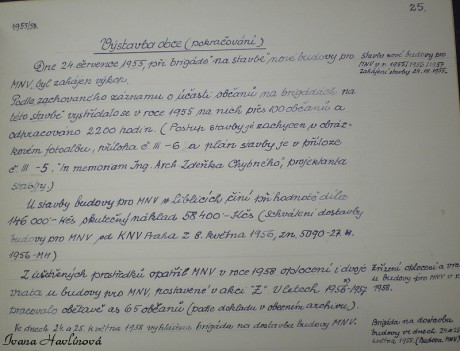 25.
1955/58
Výstavba obce (pokračování)
Dne 24. července 1955, při brigádě "na stavbě" nové budovy pro
MNV, byl zahájen výkop.
Podle zachovaného záznamu o účasti občanů na brigádách na
této stavbě vystřídalo se v roce 1955 na nich přes 100 občanů a
odpracováno 2200 hodin. (Postup stavby je zachycen v obráz-
kovém fotoalbu, příloha č. III-6 a plán stavby je v příloze
č. III-5. "In memoriam Ing. Arch. Zdeňka Chybného", projektanta
stavby.)
U stavby budovy pro MNV v Liblicích činí při hodnotě díla
146 000 - Kčs skutečný náklad 58 400 - Kčs (Schválení dostavby
budovy pro MNV od KNV Praha z 8. května 1956, zn. 5090-27.
1956-MH)
Z ušetřených prostředků opatřil MNV v roce 1958 oplocení i dvoje
vrata u budovy pro MNV, postavené v akci "Z". V letech 1956-1957
pracovalo obětavě as 65 občanů (podle dokladu v obecním archivu).
Ve dnech 24. a 25. května 1958 vyhlásil brigádu na dostavbu budovy MNV.
Stavba nové budovy pro
MNV v r. 1955, 1956, 1957.
Zahájení stavby 24. VII. 1955.
Zřízení oplocení a vrat
u budovy pro MNV v r.
1958.
Brigáda na dostavbu
budovy ve dnech 24. a 25.
května 1958. (Budova MNV)
Ivana Havlínová